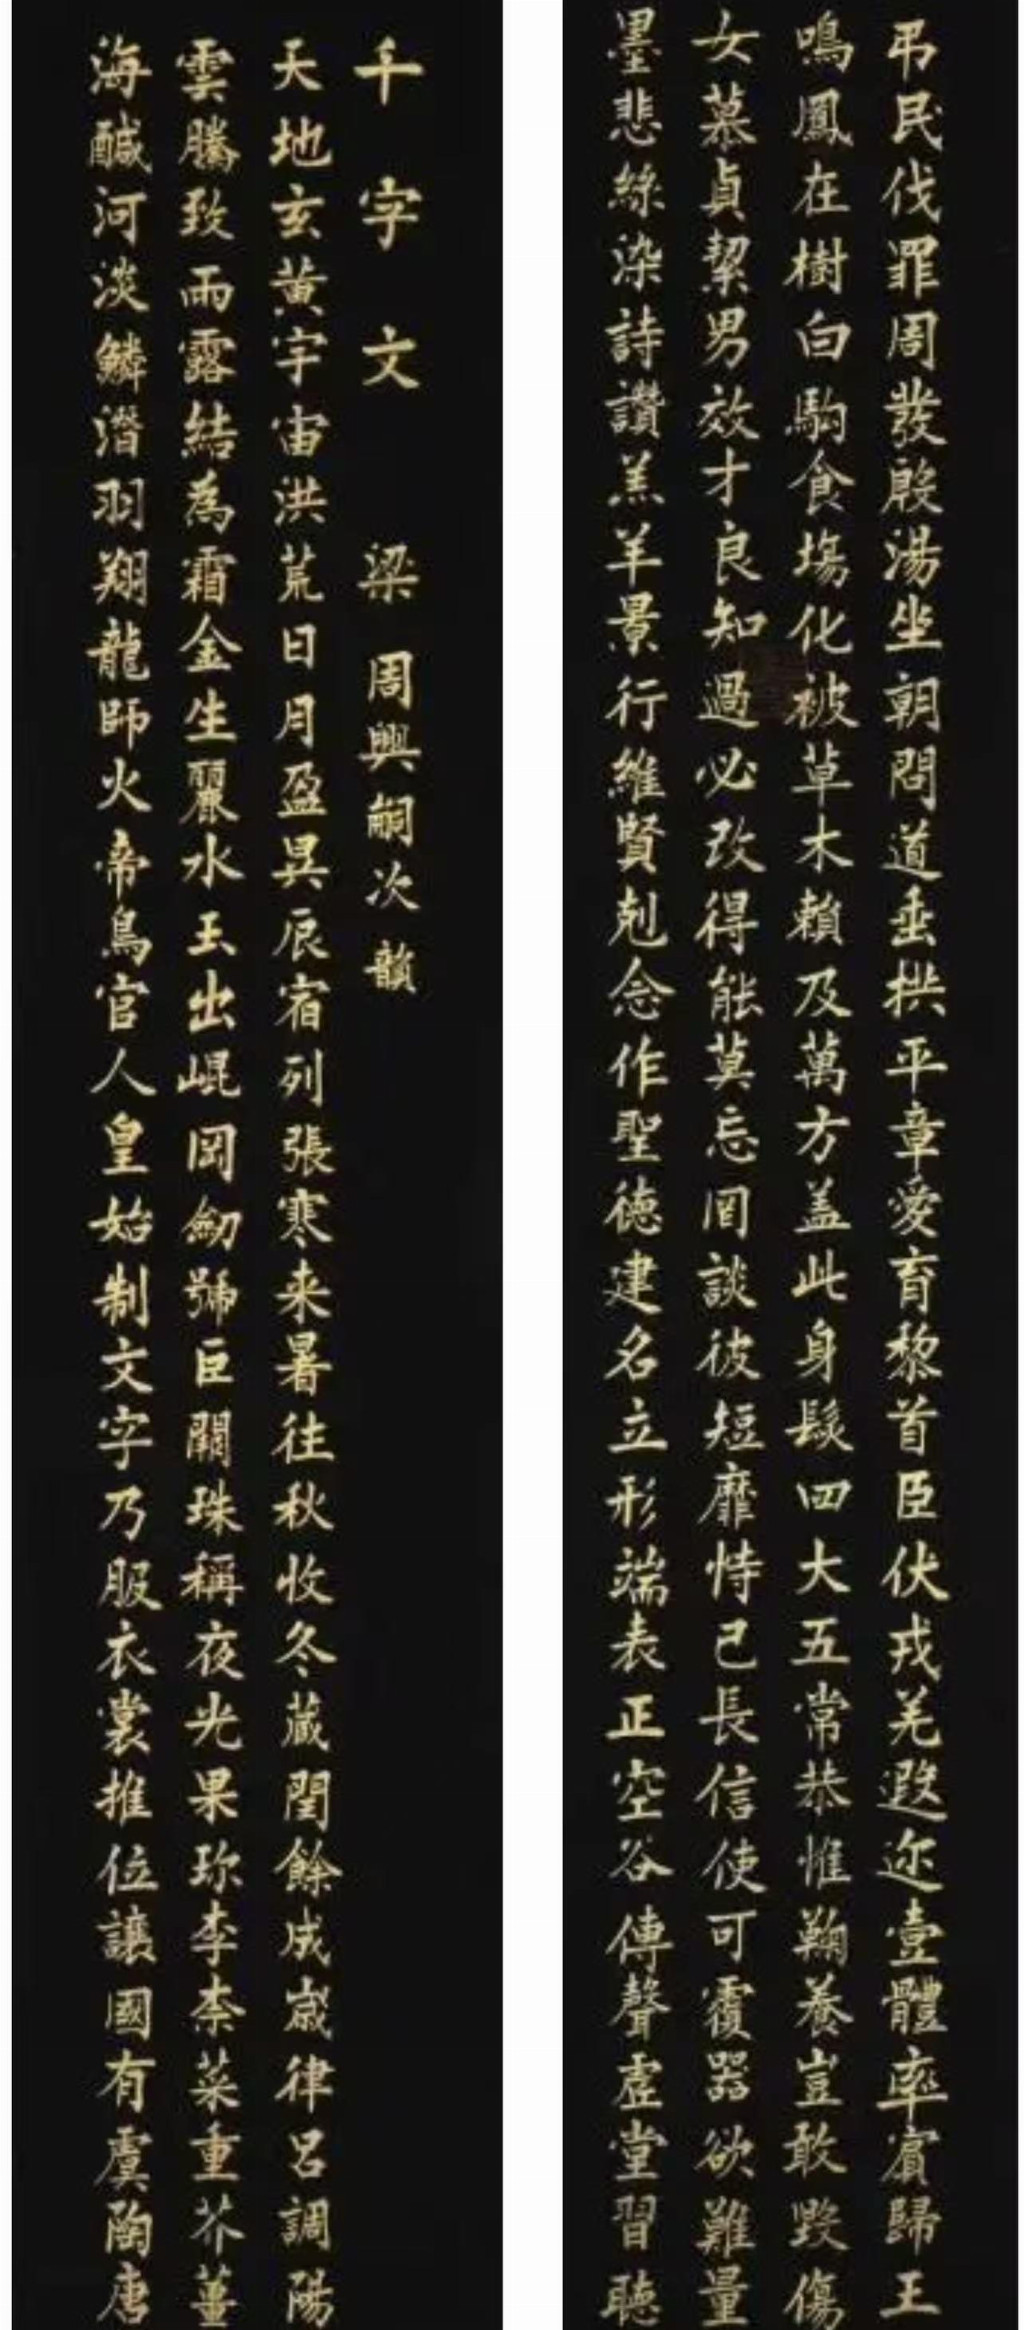 千字文 梁周興嗣次韻
天地玄黃宇宙洪荒日月盈昃辰宿列張寒来暑往秋收冬藏閏餘成歲律呂調陽
雲騰致雨露結為霜金生麗水玉出崐岡劒號巨闕珠稱夜光果珎李柰菜重芥薑
海醎河淡鱗潛羽翔龍師火帝鳥官人皇始制文字乃服衣裳推位讓國有虞陶唐
吊民伐罪周發殷湯坐朝問道垂拱平章愛育黎首臣伏戎羌遐迩壹體率賓歸王
鳴鳳在樹白駒食塲化被草木賴及萬方盖此身髮四大五常恭惟鞠養豈敢毀傷
女慕貞絜男效才良知過必改得能莫忘罔談彼短靡恃己長信使可覆器欲難量
墨悲絲染詩讚羔羊景行維賢剋念作聖德建名立形端表正空谷傳聲虛堂習聽